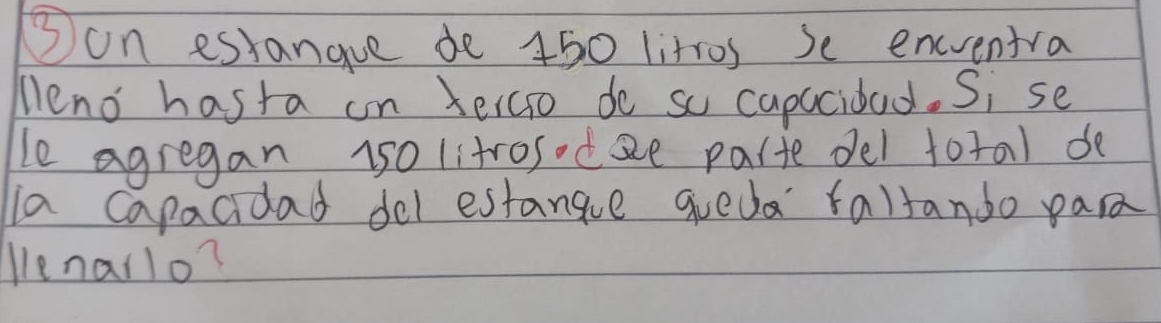 ③ Un estanque de 750 litros se encuentra
lleno hasta un tercio de su capacidad. Si se
le agregan 150 litros. ¿ que parte del total de
la capacidad del estanque queda faltando para
llenarlo?